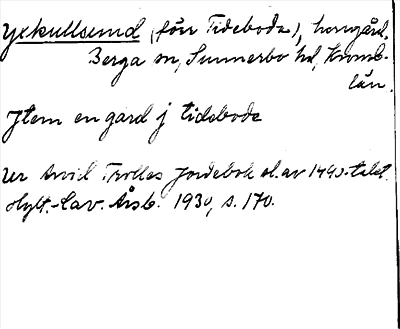 Yxkullsund (förr Tidebode), herrgård,
Berga sn, Sunnerbo hd, Kronob.
län.
Jtem en gard j tidebode
Ur Arvid Trolles Jordebok sl. av 1490-talet.
Hylt.-Cav. Årsb. 1930, s. 170.